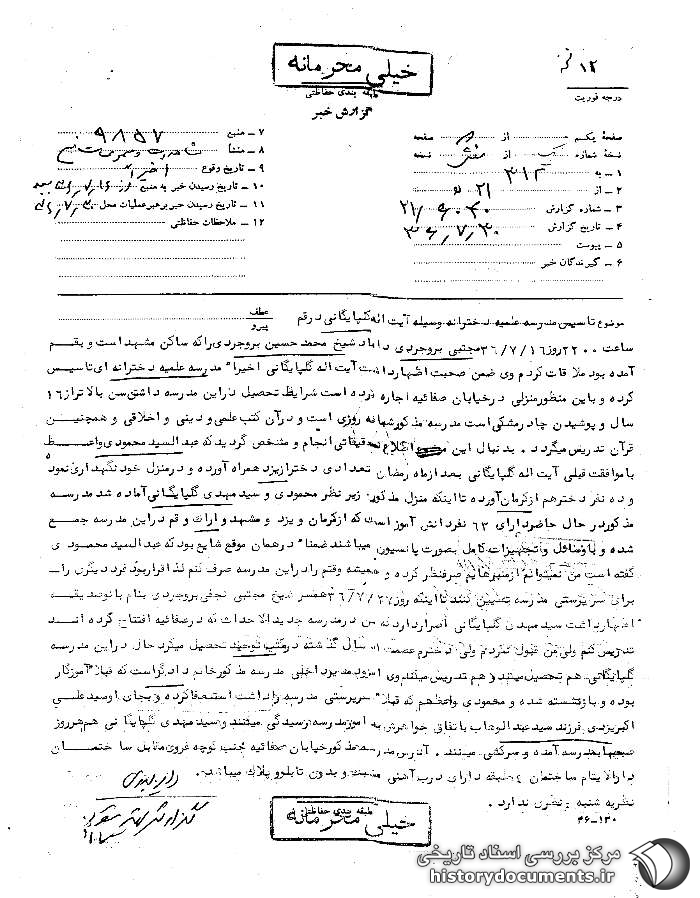 خیلی محرمانه
طبقه بندی حفاظتی
گزارش خبر
درجه فوریت
صفحه یکم از صفحه
نسخه شماره از نسخه
۱ – به ۳۱۲
۲ – از ۲۱
۳ – شماره گزارش
۴ – تاریخ گزارش ۳۶/۷/۳۰
۵ – پیوست
۶ – گیرندگان خبر
۷ – منبع ۹۸۵۷
۸ – منشأ
۹ – تاریخ وقوع اخیرا
۱۰ – تاریخ رسیدن خبر به منبع
۱۱ – تاریخ رسیدن خبر برهبر عملیات محل
۱۲ – ملاحظات حفاظتی
موضوع تاسیس مدرسه علمیه دخترانه وسیله آیت اله گلپایگانی در قم
عطف
پیرو
ساعت ۲۲۰۰ روز ۳۶/۷/۱۶ مجتبی بروجردی داماد شیخ محمد حسین بروجردی را که ساکن مشهد است و بقم
آمده بود ملاقات کردم وی ضمن صحبت اظهار داشت آیت اله گلپایگانی اخیرا" مدرسه علمیه دخترانه ای تاسیس
کرده و باین منظور منزلی در خیابان صفائیه اجاره کرده است شرایط تحصیل در این مدرسه داشتن سن بالاتر از ۱۶
سال و پوشیدن چادر مشکی است مدرسه مذکور شبانه روزی است و در آن کتب علمی و دینی و اخلاقی و همچنین
قرآن تدریس میگردد . بدنبال این اطلاع تحقیقاتی انجام و مشخص گردید که عبدالسید محمودی واعظ
با موافقت قبلی آیت اله گلپایگانی بعد از ماه رمضان تعدادی دختر از یزد همراه آورده و در منزل خود نگهداری نمود
و ده نفر دختر هم از کرمان آورده تا اینکه منزل مذکور زیر نظر محمودی و سید مهدی گلپایگانی آماده شد مدرسه
مذکور در حال حاضر دارای ۶۳ نفر دانش آموز است که از کرمان و یزد و مشهد و اراک و قم در این مدرسه جمع
شده و با وسائل و تجهیزات کامل بصورت پانسیون میباشند ضمنا" در همان موقع شایع بود که عبدالسید محمودی
گفته است من نمیتوانم از منبرهایم صرفنظر کرده و همیشه وقتم را در این مدرسه صرف کنم لذا قرار بود فرد دیگری را
برای سرپرستی مدرسه تعیین کنند تا اینکه روز ۳۶/۷/۲۷ همسر شیخ مجتبی نجفی بروجردی بنام بانو صدیقه
اظهار داشت سید مهدی گلپایگانی اصرار دارد که من در مدرسه جدید الاحداث که در صفائیه افتتاح کرده اند
تدریس کنم ولی من قبول نکردم ولی دخترم عصمت که سال گذشته در مکتب توحید تحصیل میکرد حال در این مدرسه
گلپایگانی هم تحصیل میکند و هم تدریس میکند وی افزود مدیر داخلی مدرسه مذکور خانم دادگر است که قبلا" آموزگار
بوده و بازنشسته شده و محمودی واعظ هم که قبلا" سرپرستی مدرسه را داشت استعفا کرده و بجای او سید علی
اکبر یزدی فرزند سید عبدالوهاب با اتفاق خواهرش به امور مدرسه رسیدگی میکنند و سید مهدی گلپایگانی هم هر روز
صبحها بمدرسه آمده و سرکشی میکند . آدرس مدرسه مذکور خیابان صفائیه جنب کوچه غروی مقابل ساختمان
دارالایتام ساختمان طبقه دارای درب آهنی مشبک و بدون تابلو و پلاک میباشد .
نظریه شنبه نظری ندارد .
۱۳۰–۳۶
طبقه بندی حفاظتی
خیلی محرمانه
مرکز بررسی اسناد تاریخی
historydocuments.ir